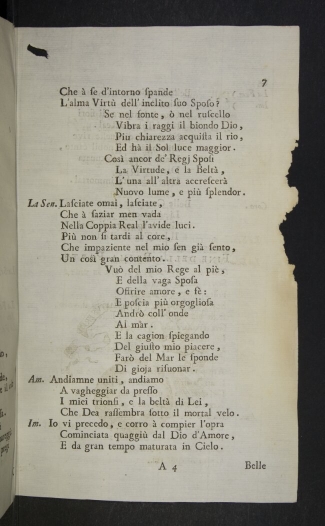 7
Che à se d'intorno spande
L'alma Virtù dell' inclito suo Sposo?
Se nel fonte, ò nel ruscello
Vibra i raggi il biondo Dio,
Piu chiarezza acquista il rio,
Ed hà il Sol luce maggior.
Così ancor de' Regj Sposi
La Virtude, e la Beltà,
L'una all' altra accrescerà
Nuovo lume, e più splendor.
La Sen. Lasciate omai, lasciate,
Che à saziar men vada
Nella Coppia Real l'avide luci.
Più non si tardi al core,
Che impaziente nel mio sen già sento,
Un così gran contento.
Vuò del mio Rege al piè,
E della vaga Sposa
Offrire amore, e fè:
E poscia più orgogliosa
Andrò coll' onde
Al mar.
E la cagion spiegando
Del giusto mio piacere,
Farò del Mar le sponde
Di gioja risuonar.
Am. Andiamne uniti, andiamo
A vagheggiar da presso
I miei trionfi, e la beltà di Lei,
Che Dea rassembra sotto il mortal velo.
Im. Io vi precedo, e corro à compier l'opra
Cominciata quaggiù dal Dio d'Amore,
E da gran tempo maturata in Cielo.
A 4 Belle